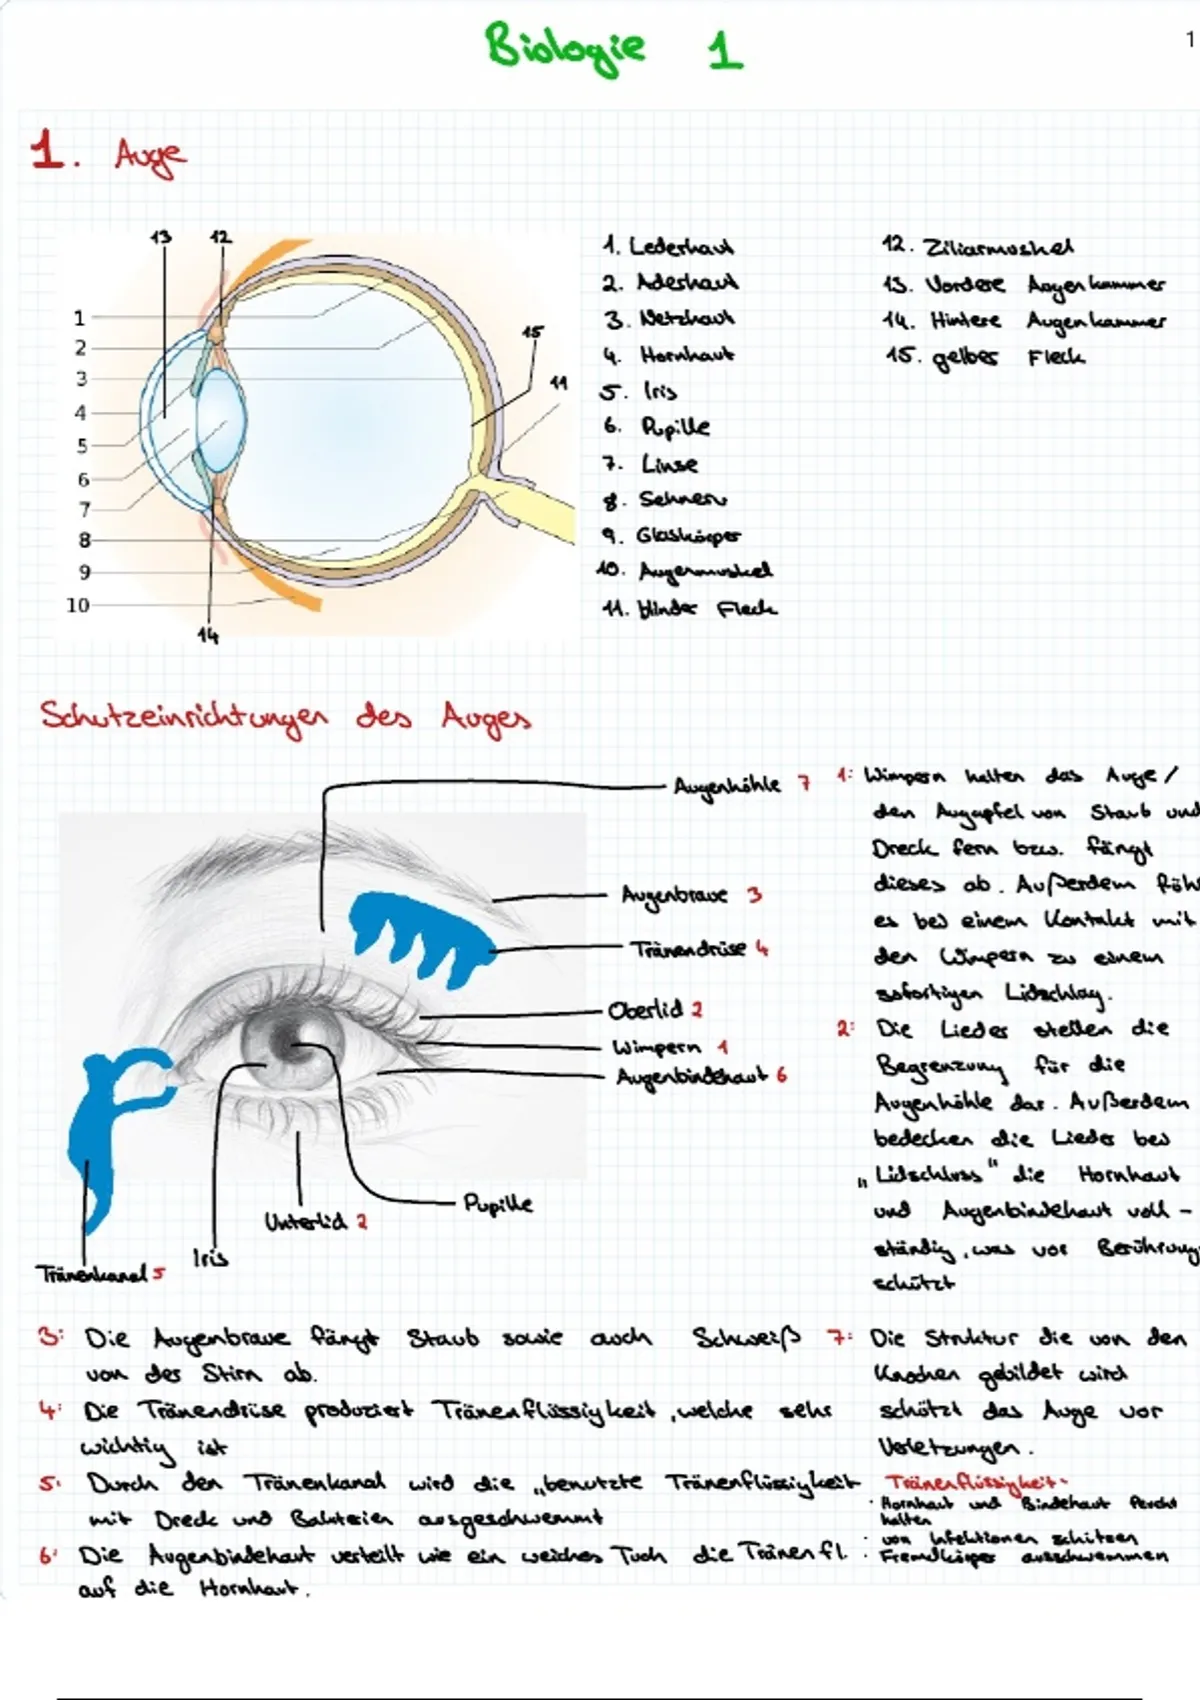 Biologie 1
1
1. Auge
13 12
1
2
3
4
5
6
7
8
9
10
15
11
14
1. Lederhaut
2. Aderhaut
3. Netzhaut
4. Hornhaut
5. Iris
6. Pupille
7. Linse
8. Sehnerv
9. Glaskörper
10. Augenmuskel
11. blinder Fleck
12. Ziliarmuskel
13. Vordere Augenkammer
14. Hintere Augenkammer
15. gelber Fleck
Schutzeinrichtungen des Auges
Augenhöhle 7
Augenbraue 3
Tränendrüse 4
Oberlid 2
Wimpern 1
Augenbindehaut 6
Pupille
Unterlid 2
Iris
Tränenkanal 5
1: Wimpern halten das Auge /
den Augapfel von Staub und
Dreck fern bzw. fängt
dieses ab. Außerdem füh
es bei einem Kontakt mit
den Wimpern zu einem
sofortigen Lidschlag.
2: Die Lieder stellen die
Begrenzung für die
Augenhöhle dar. Außerdem
bedecken die Lieder bei
„Lidschluss" die Hornhaut
und Augenbindehaut voll-
ständig, was vor Berührung
schützt
3: Die Augenbraue fängt Staub sowie auch Schweiß
von der Stirn ab.
4: Die Tränendrüse produziert Tränenflüssigkeit, welche sehr
wichtig ist
5: Durch den Tränenkanal wird die „benutzte Tränenflüssigkeit
mit Dreck und Bakterien ausgeschwemmt
6: Die Augenbindehaut verteilt wie ein weiches Tuch die Tränenfl.
auf die Hornhaut.
7: Die Struktur die von den
Knochen gebildet wird
schützt das Auge vor
Verletzungen.
Tränenflüssigkeit:
· Hornhaut und Bindehaut feucht
halten
· von Infektionen schützen
· Fremdkörper ausschwemmen